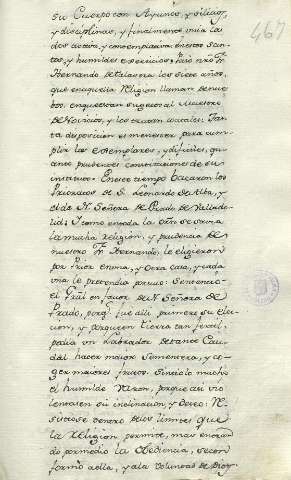 467
su Cuerpo con Ayunos, y silicios,
y disciplinas, y finalmente en la
dos ocios, y contemplativa en estos san-
tos, y humildes exercicios; hizo nro Fr.
Hernando de Talavera los siete años,
que en aquella Religion llaman de nue-
bos. en que estan sugetos al Maestro
de Novicios, y los tratan como tales: Tan-
ta disposicion es menester para cum-
plir los exemplares, y dificiles, qu
anto prudentes constituciones de su
instituto. En este tiempo bacaron los
Prioratos de S. Leonardo de Alba, y
el de N. Señora de Prado de Vallado-
lid: I como en toda la Orn se savia
la mucha religion, y prudencia de
nuestro Fr. Hernando, le eligieron
por Prior en una, y otra Casa, y cada
una le pretendia para si. Sentencio
el Gral en favor de N Señora de
Prado, porq. fue alli primero su elec-
cion, y porque en tierra tan fertil,
pedia un Labrador de tanto Cau-
dal hacer maior Sementera, y co-
ger maiores frutos. Sintiolo mucho
el humilde Varon, porque asi vio-
lentasen su inclinacion, y deseo: Re-
sistiose dentro de los limites que
la Religion permite, mas entran-
do por medio la Obediencia, se con
formó a ella, y a la voluntad de Dios.